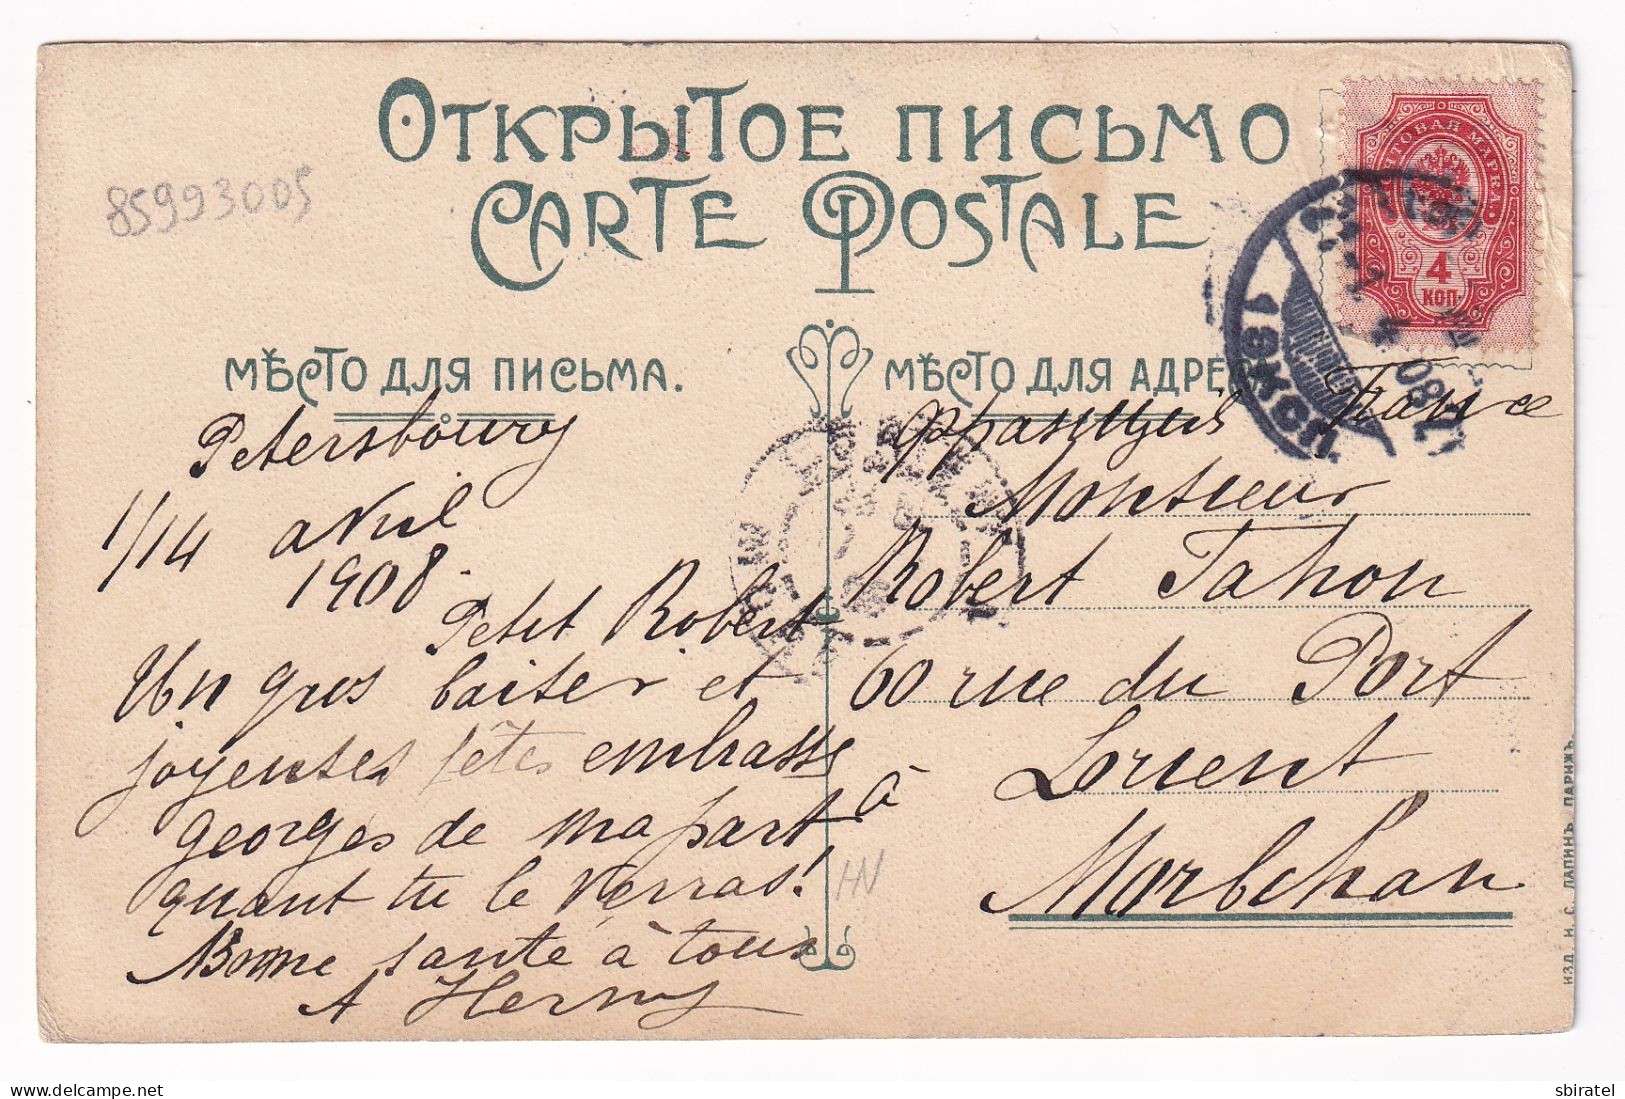 Открытое письмо
Carte Postale
85993005
ПОЧТОВАЯ МАРКА
4
КОП
Мѣсто для письма.
Мѣсто для адре
Petersbourg
1/14 avril
1908.
Petit Robert
Un gros baiser et
joyeuses fêtes embrasse
georges de ma part
quant tu le verras!
Bonne santé à tous
A Henry
France
Monsieur
Robert Tahon
60 rue du Port
à Lorient
Morbihan
HN
ИЗД. И. С. ЛАПИНЪ, ПАРИЖЪ.
sbiratel